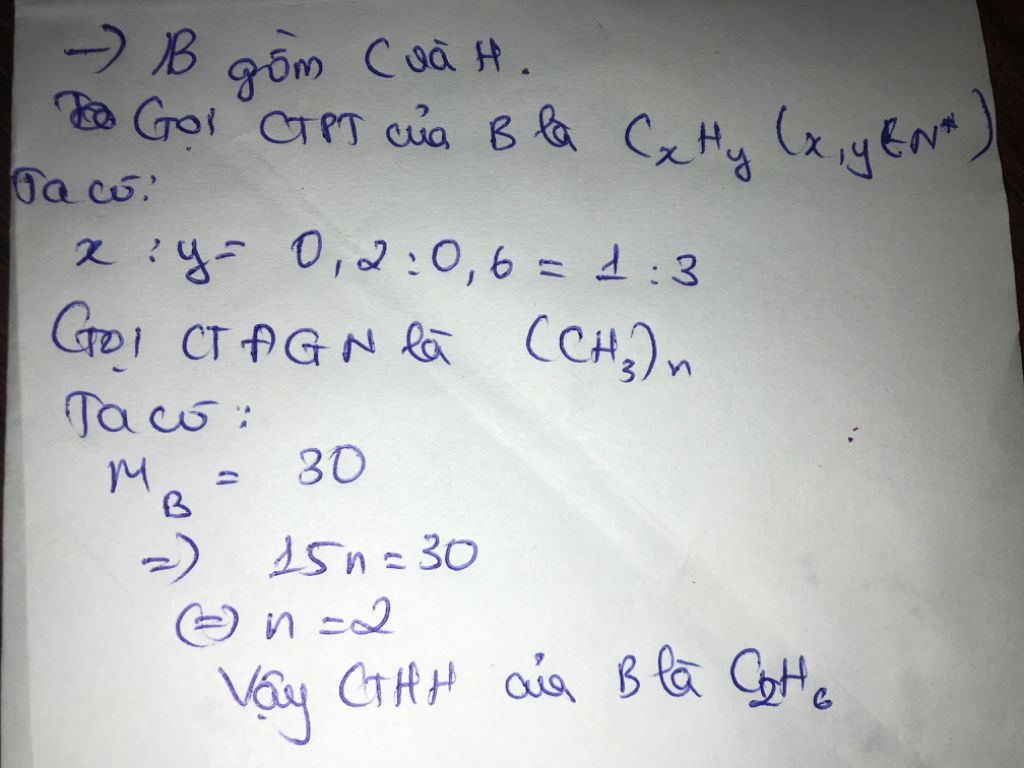 → B gồm C và H.
Gọi CTPT của B là CxHy (x,y∈N*)
Ta có:
x : y = 0,2 : 0,6 = 1 : 3
Gọi CTĐGN là (CH3)n
Ta có :
MB = 30
=) 15n = 30
(=) n = 2
Vậy CTHH của B là C2H6